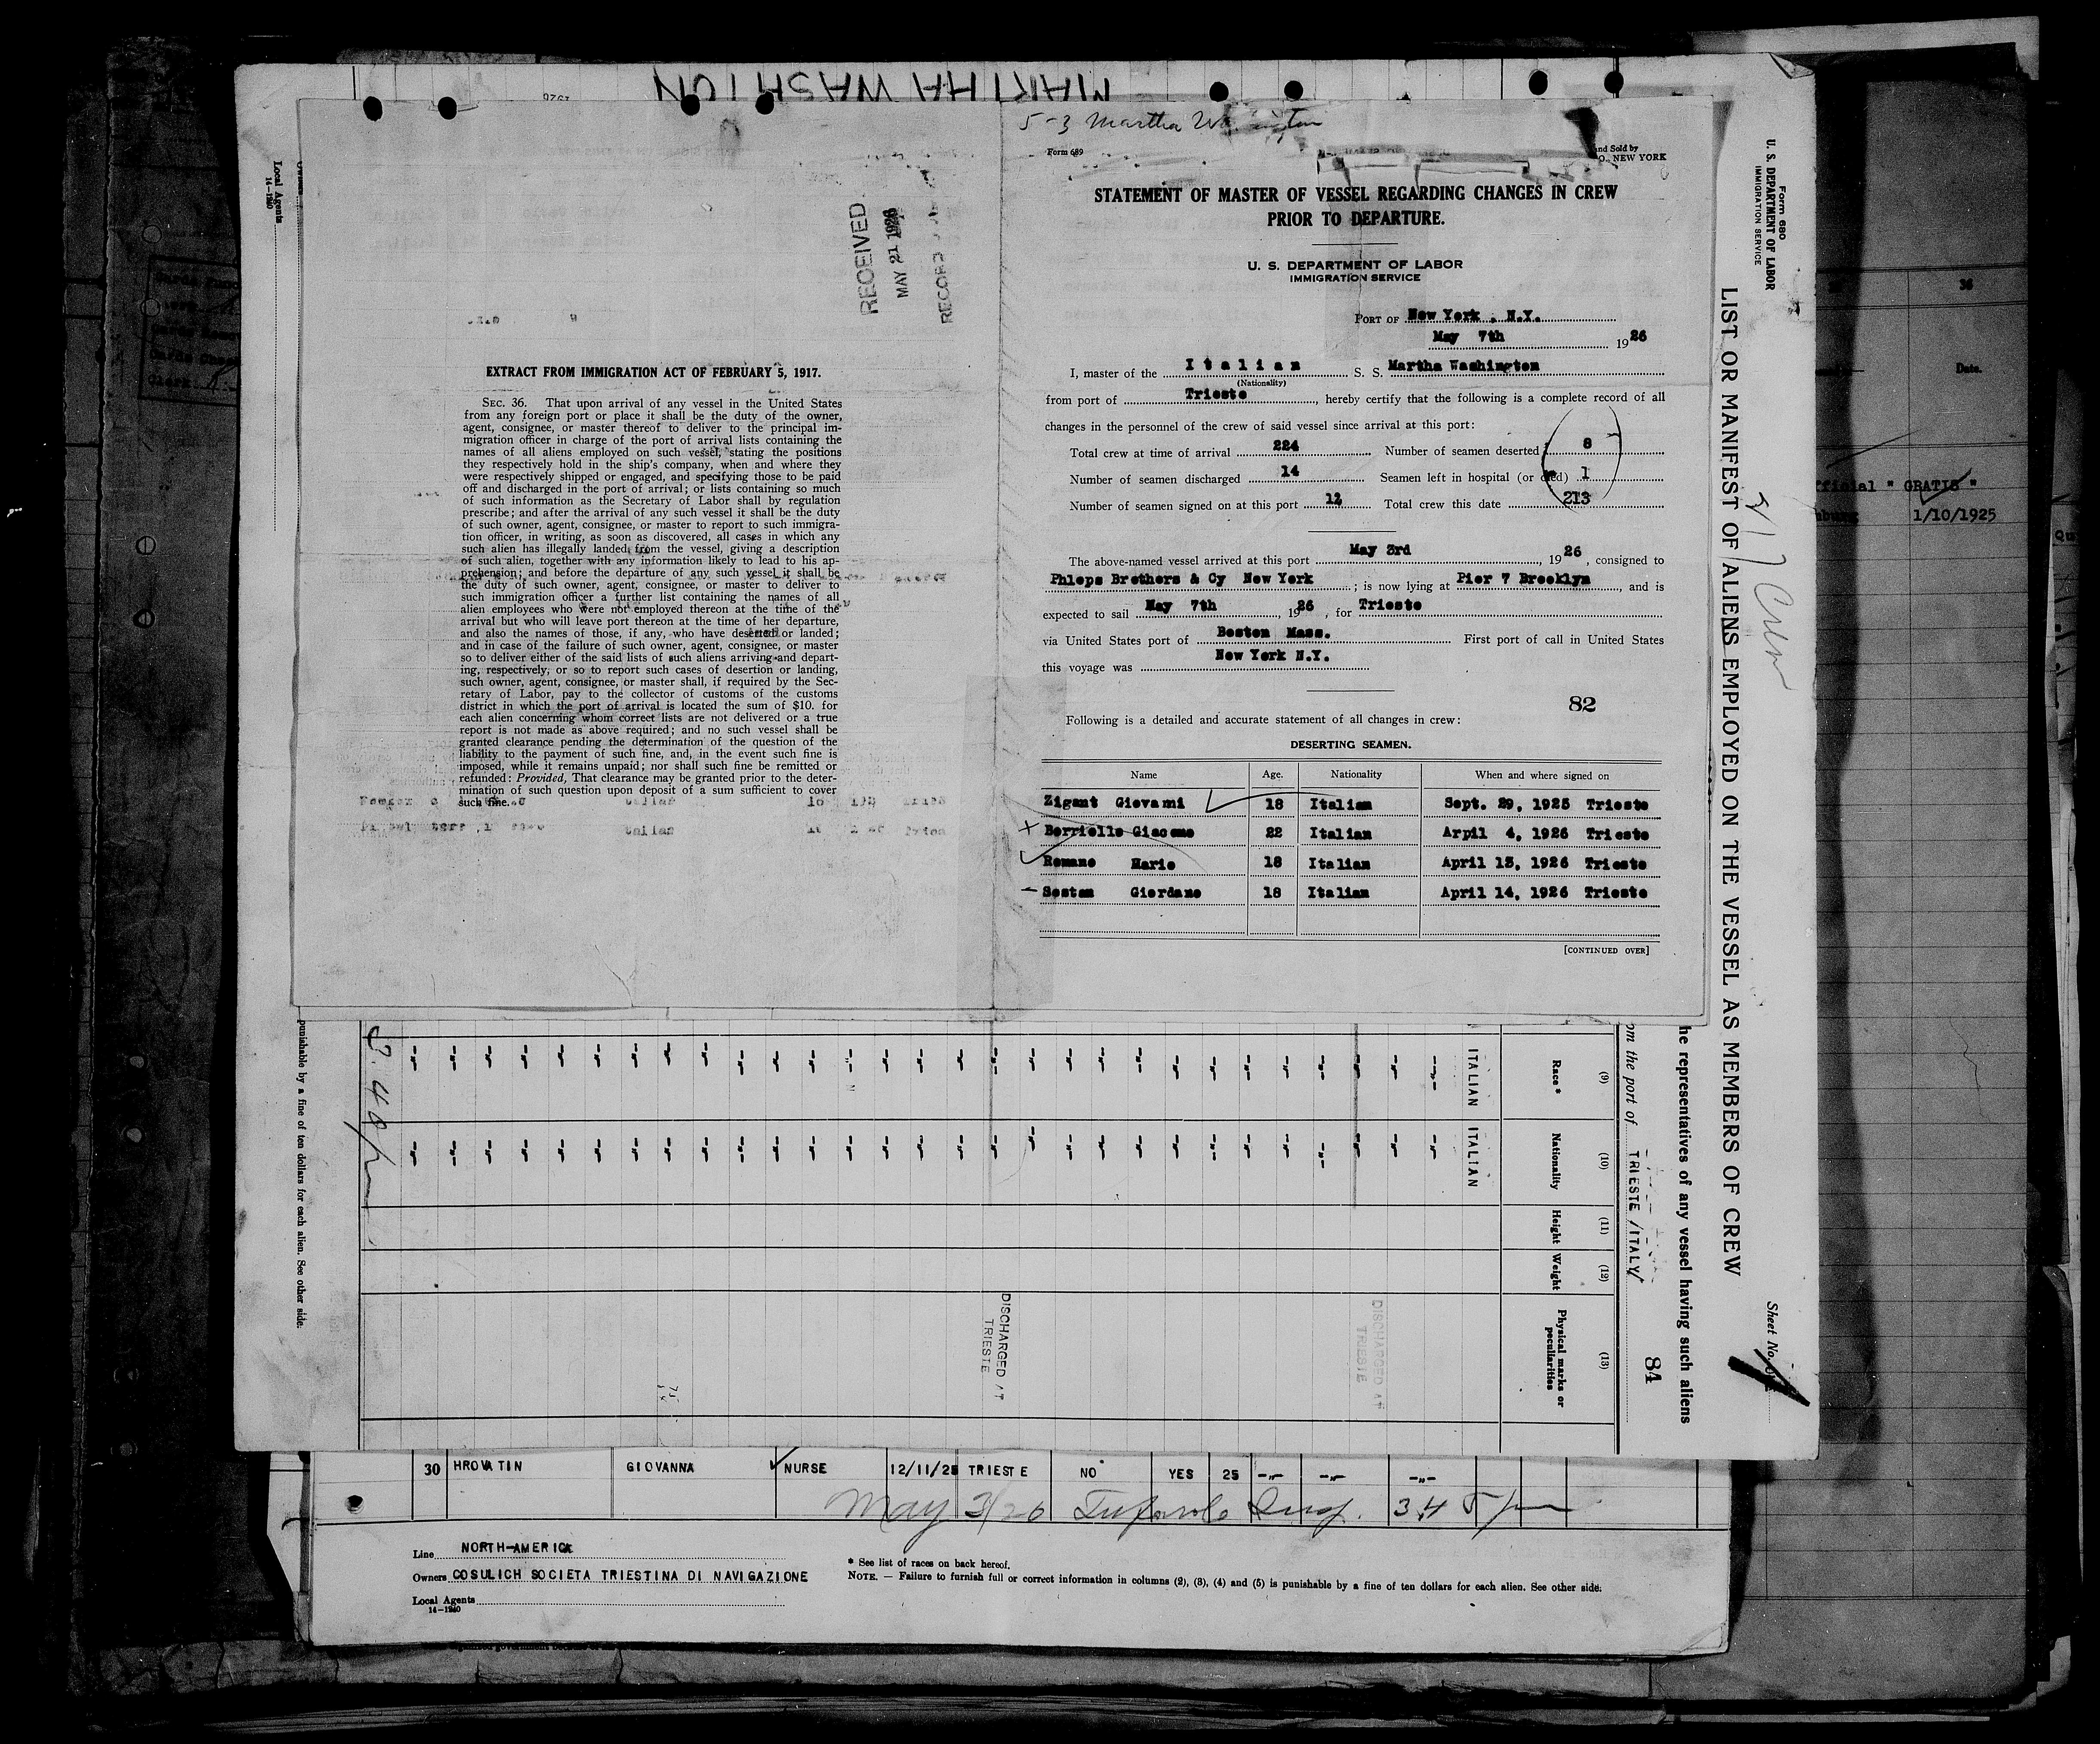 MARTHA WASHTON
5-3 Martha
Form 689
and Sold by
O., NEW YORK
STATEMENT OF MASTER OF VESSEL REGARDING CHANGES IN CREW
PRIOR TO DEPARTURE.
U. S. DEPARTMENT OF LABOR
IMMIGRATION SERVICE
PORT OF New York . N.Y.
May 7th 1926
I, master of the Italian S. S. Martha Washington
(Nationality)
from port of Trieste, hereby certify that the following is a complete record of all
changes in the personnel of the crew of said vessel since arrival at this port:
Total crew at time of arrival 224 Number of seamen deserted 8
Number of seamen discharged 14 Seamen left in hospital (or died) 1
Number of seamen signed on at this port 12 Total crew this date 213
The above-named vessel arrived at this port May 3rd, 1926, consigned to
Phleps Brothers & Cy New York; is now lying at Pier 7 Brooklyn, and is
expected to sail May 7th, 1926, for Trieste
via United States port of Boston Mass. First port of call in United States
this voyage was New York N.Y.
82
Following is a detailed and accurate statement of all changes in crew:
DESERTING SEAMEN.
Name Age. Nationality When and where signed on
Zigant Giovami 18 Italian Sept. 29, 1925 Trieste
Borriello Giacomo 22 Italian Arpil 4, 1926 Trieste
Romano Mario 18 Italian April 13, 1926 Trieste
Sestan Giordano 18 Italian April 14, 1926 Trieste
[CONTINUED OVER]
RECEIVED
MAY 21 1926
RECORD
EXTRACT FROM IMMIGRATION ACT OF FEBRUARY 5, 1917.
SEC. 36. That upon arrival of any vessel in the United States
from any foreign port or place it shall be the duty of the owner,
agent, consignee, or master thereof to deliver to the principal im-
migration officer in charge of the port of arrival lists containing the
names of all aliens employed on such vessel, stating the positions
they respectively hold in the ship's company, when and where they
were respectively shipped or engaged, and specifying those to be paid
off and discharged in the port of arrival; or lists containing so much
of such information as the Secretary of Labor shall by regulation
prescribe; and after the arrival of any such vessel it shall be the duty
of such owner, agent, consignee, or master to report to such immigra-
tion officer, in writing, as soon as discovered, all cases in which any
such alien has illegally landed from the vessel, giving a description
of such alien, together with any information likely to lead to his ap-
prehension; and before the departure of any such vessel it shall be
the duty of such owner, agent, consignee, or master to deliver to
such immigration officer a further list containing the names of all
alien employees who were not employed thereon at the time of the
arrival but who will leave port thereon at the time of her departure,
and also the names of those, if any, who have deserted or landed;
and in case of the failure of such owner, agent, consignee, or master
so to deliver either of the said lists of such aliens arriving and depart-
ing, respectively, or so to report such cases of desertion or landing,
such owner, agent, consignee, or master shall, if required by the Sec-
retary of Labor, pay to the collector of customs of the customs
district in which the port of arrival is located the sum of $10. for
each alien concerning whom correct lists are not delivered or a true
report is not made as above required; and no such vessel shall be
granted clearance pending the determination of the question of the
liability to the payment of such fine, and, in the event such fine is
imposed, while it remains unpaid; nor shall such fine be remitted or
refunded: Provided, That clearance may be granted prior to the deter-
mination of such question upon deposit of a sum sufficient to cover
such fine.
Form 680
U. S. DEPARTMENT OF LABOR
IMMIGRATION SERVICE
Sheet No.
LIST OR MANIFEST OF ALIENS EMPLOYED ON THE VESSEL AS MEMBERS OF CREW
217 Crew
he representatives of any vessel having such aliens
84
om the port of TRIESTE /ITALY/
(9) (10) (11) (12) (13)
Race* Nationality Height Weight Physical marks or peculiarities
ITALIAN ITALIAN
DISCHARGED AT
TRIESTE
DISCHARGED AT
TRIESTE
Local Agents
14-1240
punishable by a fine of ten dollars for each alien. See other side.
30 HROVATIN GIOVANNA NURSE 12/11/25 TRIESTE NO YES 25 -"- -"- -"-
May 3/26
Line NORTH-AMERICA
Owners COSULICH SOCIETA TRIESTINA DI NAVIGAZIONE
Local Agents
14-1240
* See list of races on back hereof.
NOTE. — Failure to furnish full or correct information in columns (2), (3), (4) and (5) is punishable by a fine of ten dollars for each alien. See other side.
36
Date.
fficial " GRATIS "
1/10/1925